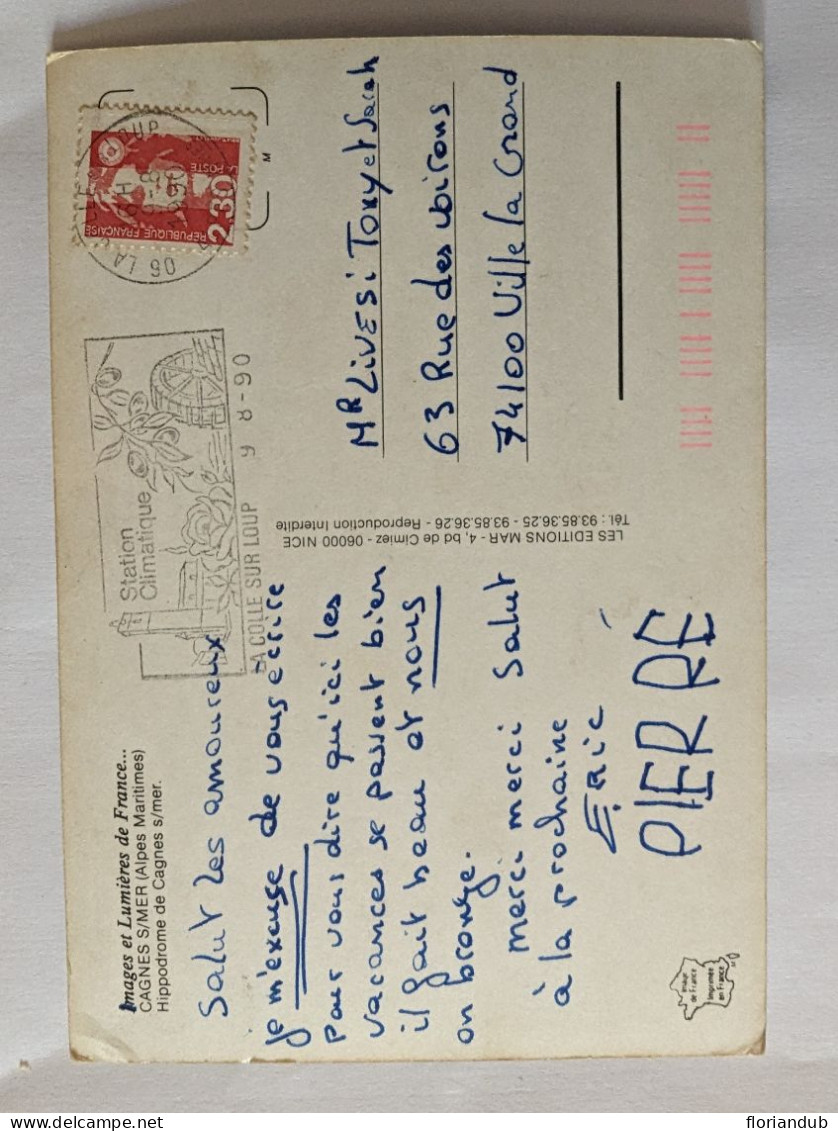 Images et Lumières de France...
CAGNES S/MER (Alpes Maritimes)
Hippodrome de Cagnes s/mer.
Salut les amoureux
je m'excuse de vous écrire
pour vous dire qu'ici les
vacances se passent bien
il fait beau et nous
on bronze.
merci merci Salut
à la prochaine
ERIC
PIERRE
Image
de France
Imprimée
en France
LES EDITIONS MAR - 4, bd de Cimiez - 06000 NICE
Tél.: 93.85.36.25 - 93.85.36.26 - Reproduction Interdite
Station
Climatique
LA COLLE SUR LOUP 9 8-90
REPUBLIQUE FRANÇAISE
2,30
LA POSTE
M
MR LIVESi Tony et Sarah
63 Rue des biRons
74100 Ville la Grand
floriandub